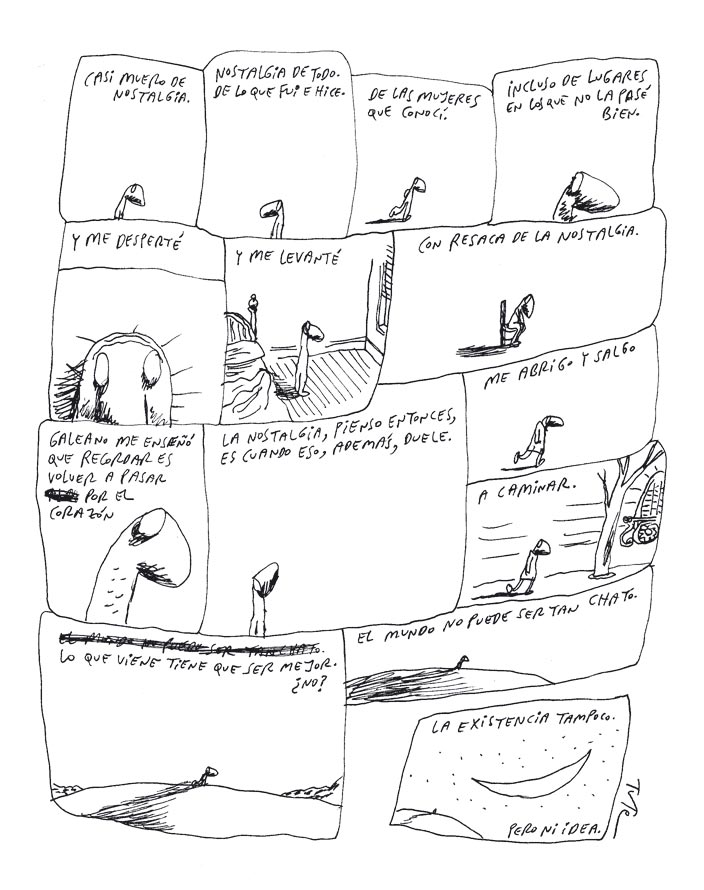 CASI MUERO DE
NOSTALGIA.
NOSTALGIA DE TODO.
DE LO QUE FUI E HICE.
DE LAS MUJERES
QUE CONOCÍ.
INCLUSO DE LUGARES
EN LOS QUE NO LA PASÉ
BIEN.
Y ME DESPERTÉ
Y ME LEVANTÉ
CON RESACA DE LA NOSTALGIA.
GALEANO ME ENSEÑÓ
QUE RECORDAR ES
VOLVER A PASAR
POR EL
CORAZÓN
LA NOSTALGIA, PIENSO ENTONCES,
ES CUANDO ESO, ADEMÁS, DUELE.
ME ABRIGO Y SALGO
A CAMINAR.
EL MUNDO NO PUEDE SER TAN CHATO.
LO QUE VIENE TIENE QUE SER MEJOR.
¿NO?
EL MUNDO NO PUEDE SER TAN CHATO.
LA EXISTENCIA TAMPOCO.
PERO NI IDEA.